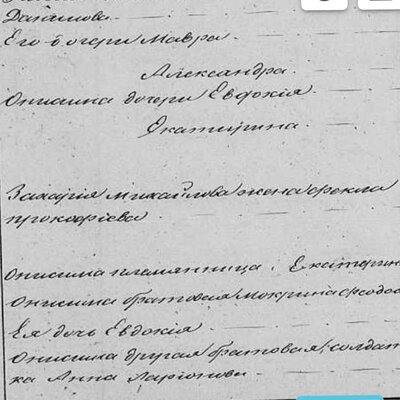 Данилова.
Его дочери Мавра.
Александра.
Онисима дочери Евдокия.
Екатерина.
Захария Михайлова жена Фекла
прокофиева.
Онисима племянница. Екатерин
Онисима братовая Мокрина
Ея дочь Евдокия
Онисима другая братовая, солдат
ка Анна Ларионова.